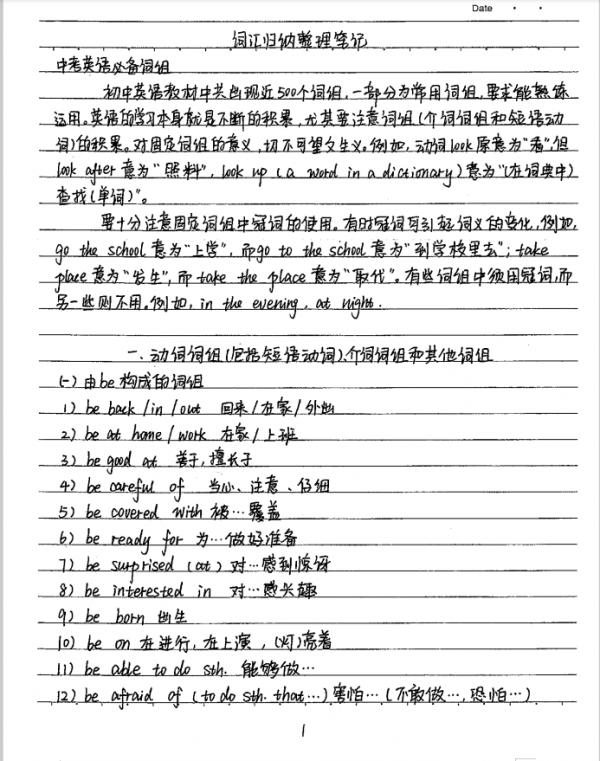 Date · ·
词汇归纳整理笔记
中考英语必备词组
初中英语教材中共出现近500个词组，一部分为常用词组，要求能熟练
运用。英语的学习本身就是不断的积累，尤其要注意词组（介词词组和短语动
词）的积累。对固定词组的意义，切不可望文生义。例如，动词look原意为“看”，但
look after 意为“照料”，look up (a word in a dictionary) 意为“(在词典中)
查找（单词）”。
要十分注意固定词组中冠词的使用。有时冠词可引起词义的变化，例如，
go the school 意为“上学”，而go to the school 意为“到学校里去”；take
place 意为“发生”，而 take the place 意为“取代”。有些词组中须用冠词，而
另一些则不用。例如，in the evening, at night.
一、动词词组（包括短语动词）、介词词组和其他词组
(一) 由be构成的词组
1) be back /in /out 回来/在家/外出
2) be at home /work 在家/上班
3) be good at 善于，擅长于
4) be careful of 当心、注意、仔细
5) be covered with 被…覆盖
6) be ready for 为…做好准备
7) be surprised (at) 对…感到惊讶
8) be interested in 对…感兴趣
9) be born 出生
10) be on 在进行，在上演，(灯)亮着
11) be able to do sth. 能够做…
12) be afraid of (to do sth. that…) 害怕…（不敢做…，恐怕…）
1